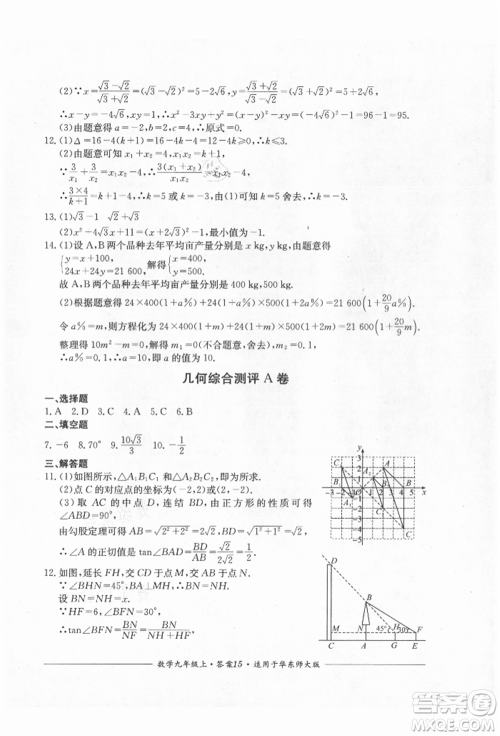 (2)∵x=(√3-√2)/(√3+√2)=(√3-√2)²=5-2√6,y=(√3+√2)/(√3-√2)=(√3+√2)²=5+2√6,
∴x-y=-4√6,xy=1,∴x²-3xy+y²=(x-y)²-xy=(-4√6)²-1=96-1=95.
(3)由题意得a=-2,b=2,∴原式=0.
12.(1)Δ=16-4(k+1)=16-4k-4=12-4k≥0,∴k≤3.
(2)由题意可知x₁+x₂=4,x₁x₂=k+1.
∵3/x₁+3/x₂=x₁x₂-4,∴3(x₁+x₂)/(x₁x₂)=x₁x₂-4,
∴(3×4)/(k+1)=k+1-4,∴k=5或k=-3.由(1)知k≤3,∴k=-3.
13.(1)√3-1 √2+√3
(2)x²-4√3x+11=0.
14.(1)设A,B两个品种去年平均亩产量分别是x kg,y kg,由题意得
{y=x+100, 24x+24y=21 600, 解得{x=400, y=500.
故A,B两个品种去年平均亩产量分别是400 kg,500 kg.
(2)根据题意得24×400(1+a%)+24×500(1+a%)(1+2a%)=21 600(1+20/9a%).
令a%=m,则方程化为24×400(1+m)+24×500(1+m)(1+2m)=21 600(1+20/9m).
整理得10m²-m=0,解得m₁=0(不合题意,舍去),m₂=0.1.
∴a%=0.1,即a的值为10.
几何综合测评A卷
一、选择题
1.A 2.D 3.C 4.A 5.A 6.A
二、填空题
7.-6 8.70° 9.10√3/3 10.-1/2
三、解答题
11.(1)如图所示,△A₁B₁C₁和△A₂B₂C₂即为所求.
(2)点C的对应点的坐标为(-2,2)或(4,-4).
(3)取AC的中点D,连结BD,由正方形的性质可得∠ABD=90°.
由勾股定理可得AB=√(2²+2²)=2√2,BD=√(1²+1²)=√2,
∴∠A的正切值是tan∠BAD=BD/AB=√2/(2√2)=1/2.
12.如图,延长FH,交CD于点M,交AB于点N.
∵∠BHN=45°,BA⊥MH,则BN=NH.
设BN=NH=x.
∵HF=6,∠BFN=30°,
∴tan∠BFN=BN/NF=BN/(NH+HF),
D
B
M
N
45°
30°
H
F
C
A
G
E
数学九年级上·答案15·适用于华东师大版